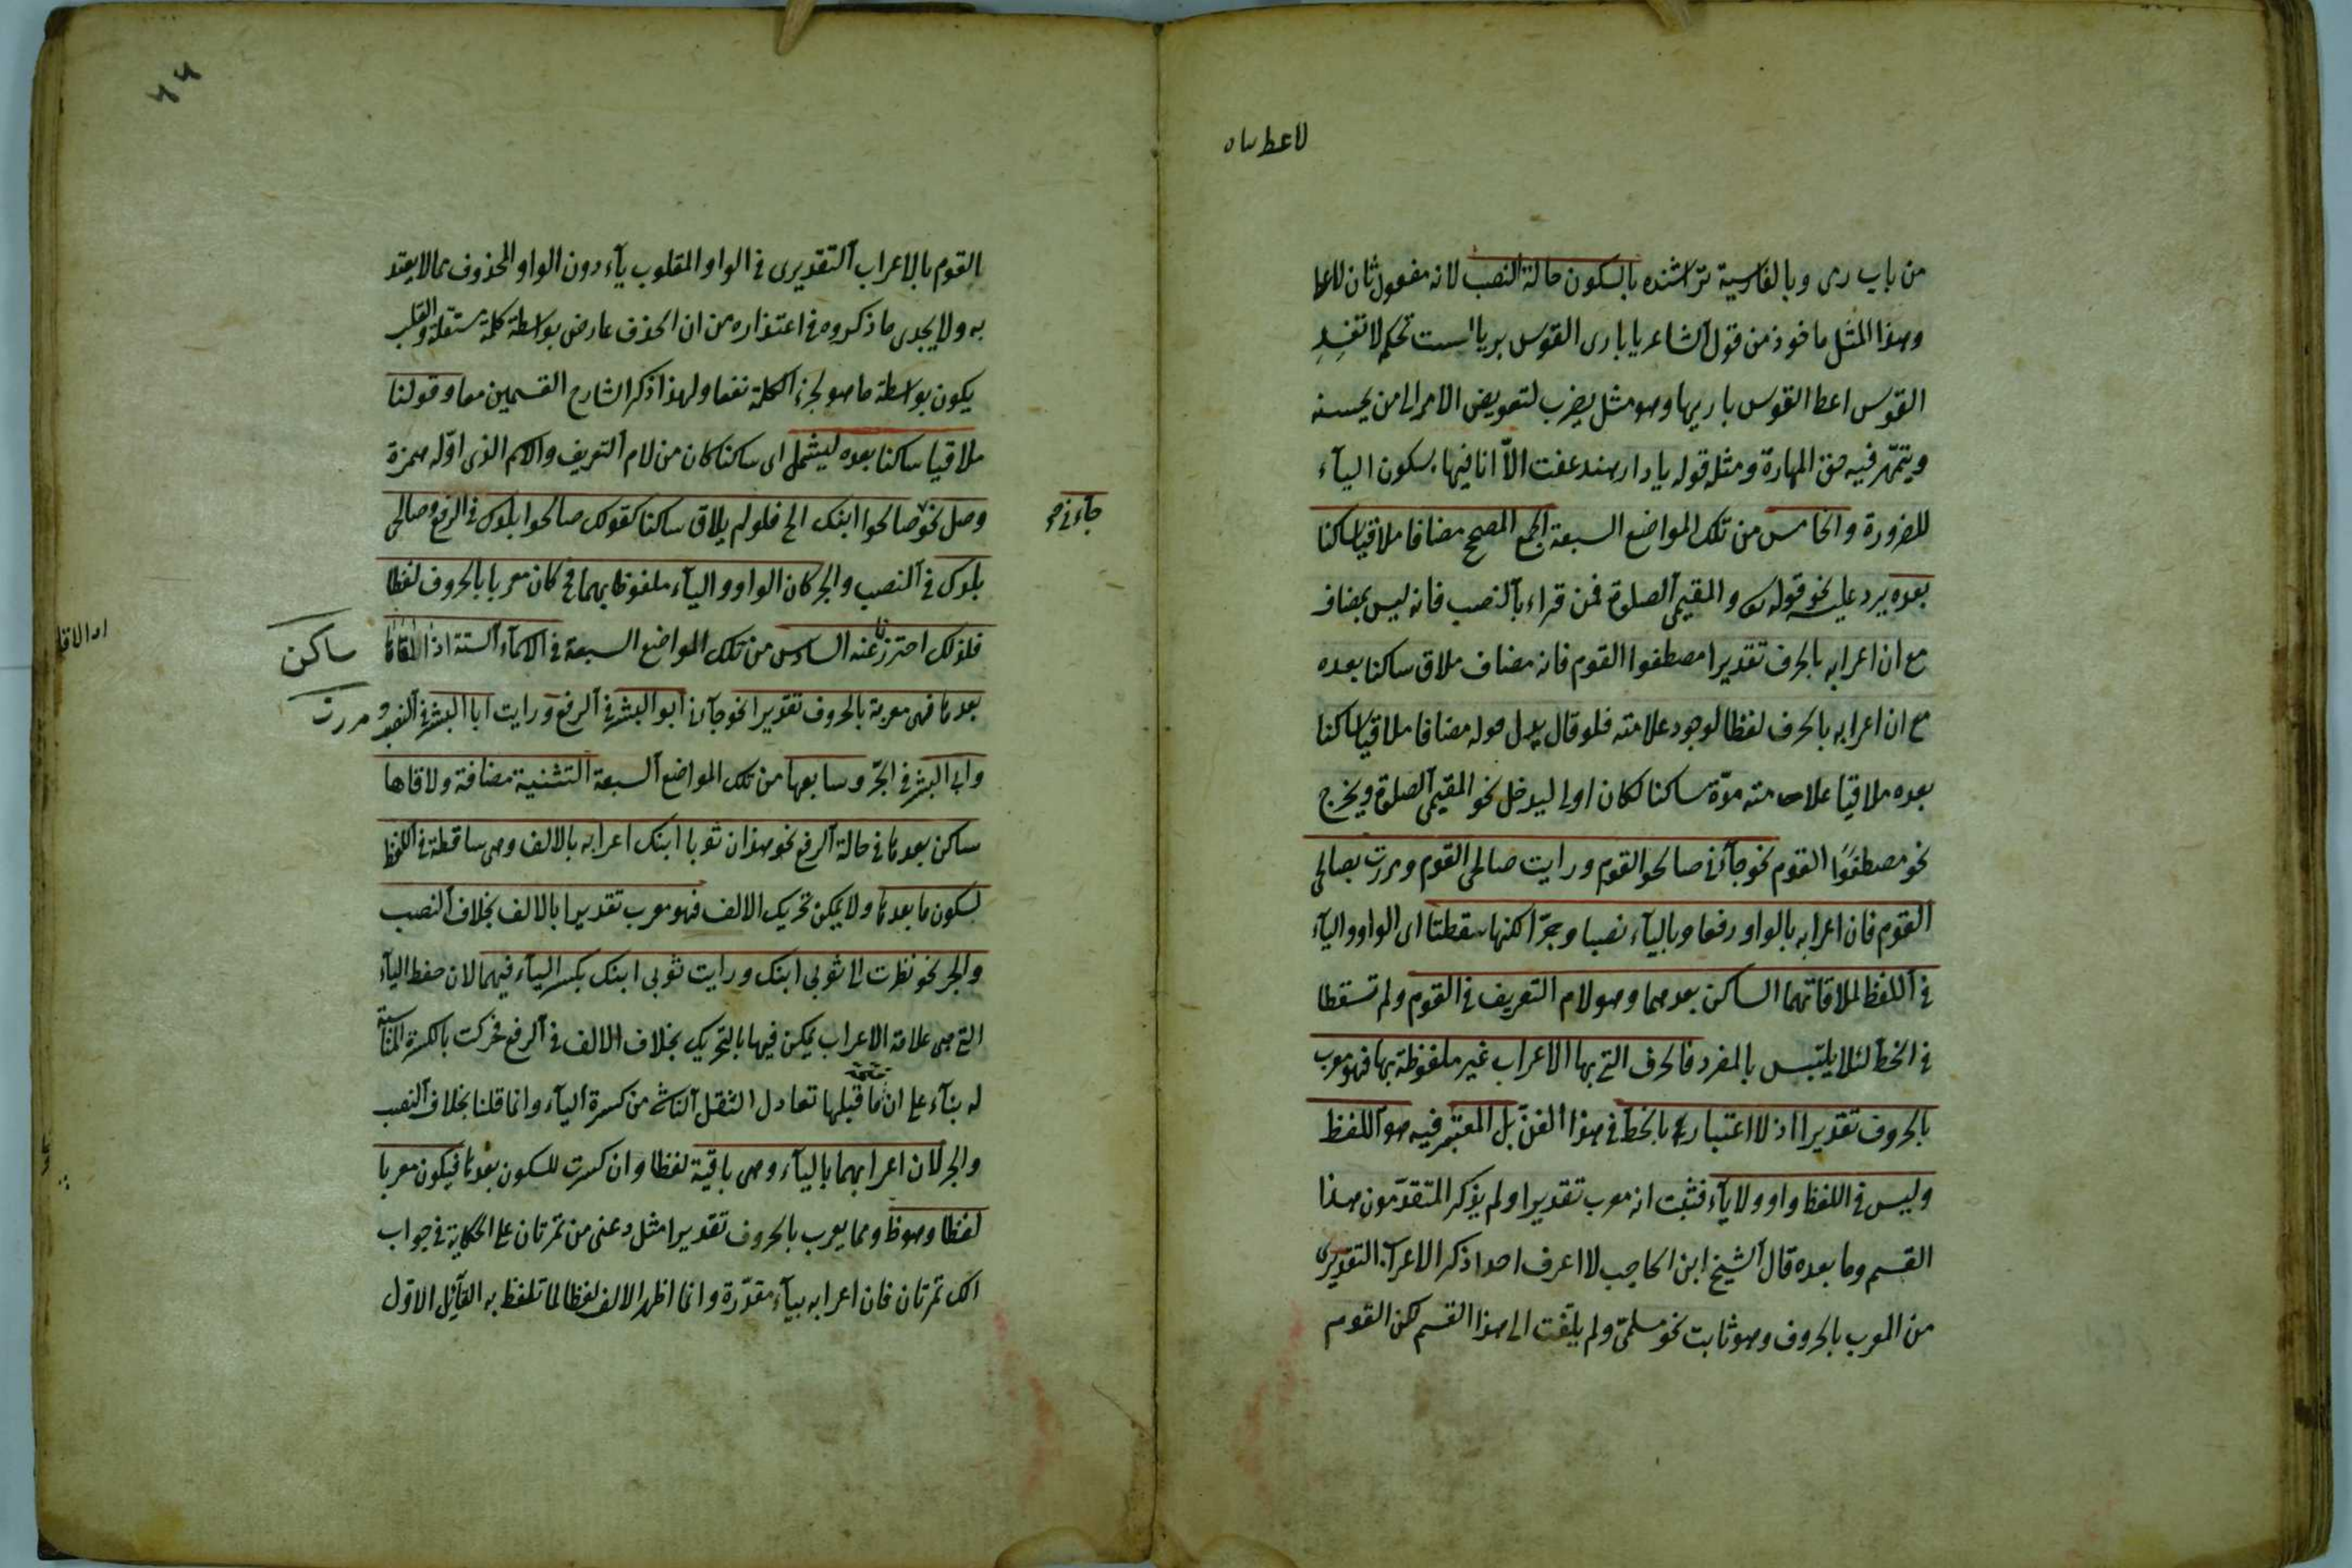 من باب رمى وبالفارسية تراشنده بالسكون حالة النصب لانه مفعول ثان للاعطا
وهذا المثل ماخوذ من قول الشاعر يا بارى القوس بريا لست تحكم لا تفسد
القوس اعط القوس باريها وهو مثل يضرب لتفويض الامر الى من يحسنه
ويتمهّر فيه حق المهارة ومثله قوله يا دار هند عفت الاّ اثافيها بسكون اليآء
للضرورة والخامس من تلك المواضع السبعة الجمع المصحح مضافا ملاقيا ساكنا
بعده يرد عليه نحو قوله تعالى والمقيمى الصلوة فمن قراء بالنصب فانه ليس بمضاف
مع ان اعرابه بالحرف تقديرا مصطفوا القوم فانه مضاف ملاق ساكنا بعده
مع ان اعرابه بالحرف لفظا لوجود علامته فلو قال بدل قوله مضافا ملاقيا ساكنا
بعده ملاقيا علامته مدّة ساكنا لكان اولى ليدخل نحو المقيمى الصلوة ويخرج
نحو مصطفوا القوم نحو جآءنى صالحو القوم ورايت صالحى القوم ومررت بصالحى
القوم فان اعرابه بالواو رفعا وباليآء نصبا وجرّا لكنها سقطتا اى الواو واليآء
فى اللفظ لملاقاتهما الساكن بعدهما وهو لام التعريف فى القوم ولم تسقطا
فى الخط لئلا يلتبس بالمفرد فالحرف التى بها الاعراب غير ملفوظة بها فهو معرب
بالحروف تقديرا اذ لا اعتبار بالخط فى هذا الفنّ بل المعتبر فيه هو اللفظ
وليس فى اللفظ واو ولا يآء فثبت انه معرب تقديرا ولم يذكر المتقدّمون هذا
القسم وما بعده قال الشيخ ابن الحاجب لا اعرف احدا ذكر الاعراب التقديرى
من المعرب بالحروف وهو ثابت نحو مسلمىّ ولم يلتفت الى هذا القسم لكن القوم
القوم بالاعراب التقديرى فى الواو المقلوب يآء دون الواو المحذوف مما لا يعتد
به ولا يجدى ما ذكروه فى اعتذاره من ان الحذف عارض بواسطة كلمة مستقلة والقلب
يكون بواسطة ما هو لجزء الكلمة نفعا ولهذا ذكر الشارح القسمين معا وقولنا
ملاقيا ساكنا بعده ليشمل اى ساكنا كان من لام التعريف والاسم الذى اوّله همزة
وصل نحو صالحوا ابنك الخ فلو لم يلاق ساكنا كقولك صالحوا بلدك فى الرفع وصالحى
جآءنى
بلدك فى النصب والجر كان الواو واليآء ملفوظا بهما فح كان معربا بالحروف لفظا
فلذلك احترزنا عنه السادس من تلك المواضع السبعة فى الاسمآء الستة اذا لاقاها
ساكن
بعدها فهى معربة بالحروف تقديرا نحو جآءنى ابو البشر فى الرفع ورايت ابا البشر فى النصب و
مررت
وابى البشر فى الجرّ وسابعها من تلك المواضع السبعة التثنية مضافة ولاقاها
ساكن بعدها فى حالة الرفع نحو هذان ثوبا ابنك اعرابه بالالف وهى ساقطة فى اللفظ
لسكون ما بعدها ولا يمكن تحريك الالف فهو معرب تقديرا بالالف بخلاف النصب
والجر نحو نظرت الى ثوبى ابنك ورايت ثوبى ابنك بكسر اليآء فيهما لان حفظ اليآء
التى هى علامة الاعراب يمكن فيها بالتحريك بخلاف الالف فى الرفع فحركت بالكسرة المناسبة
له بنآء على ان فتحة ما قبلها تعادل الثقل الناشى من كسرة اليآء وانما قلنا بخلاف النصب
والجر لان اعرابهما باليآء وهى باقية لفظا وان كسرت للسكون بعدها فيكون معربا
لفظا وهو ظ ومما يعرب بالحروف تقديرا مثل دعنى من تمرتان على الحكاية فى جواب
الك تمرتان فان اعرابه بيآء مقدّرة وانما اظهر الالف لفظا لما تلفظ به القآئل الاوّل